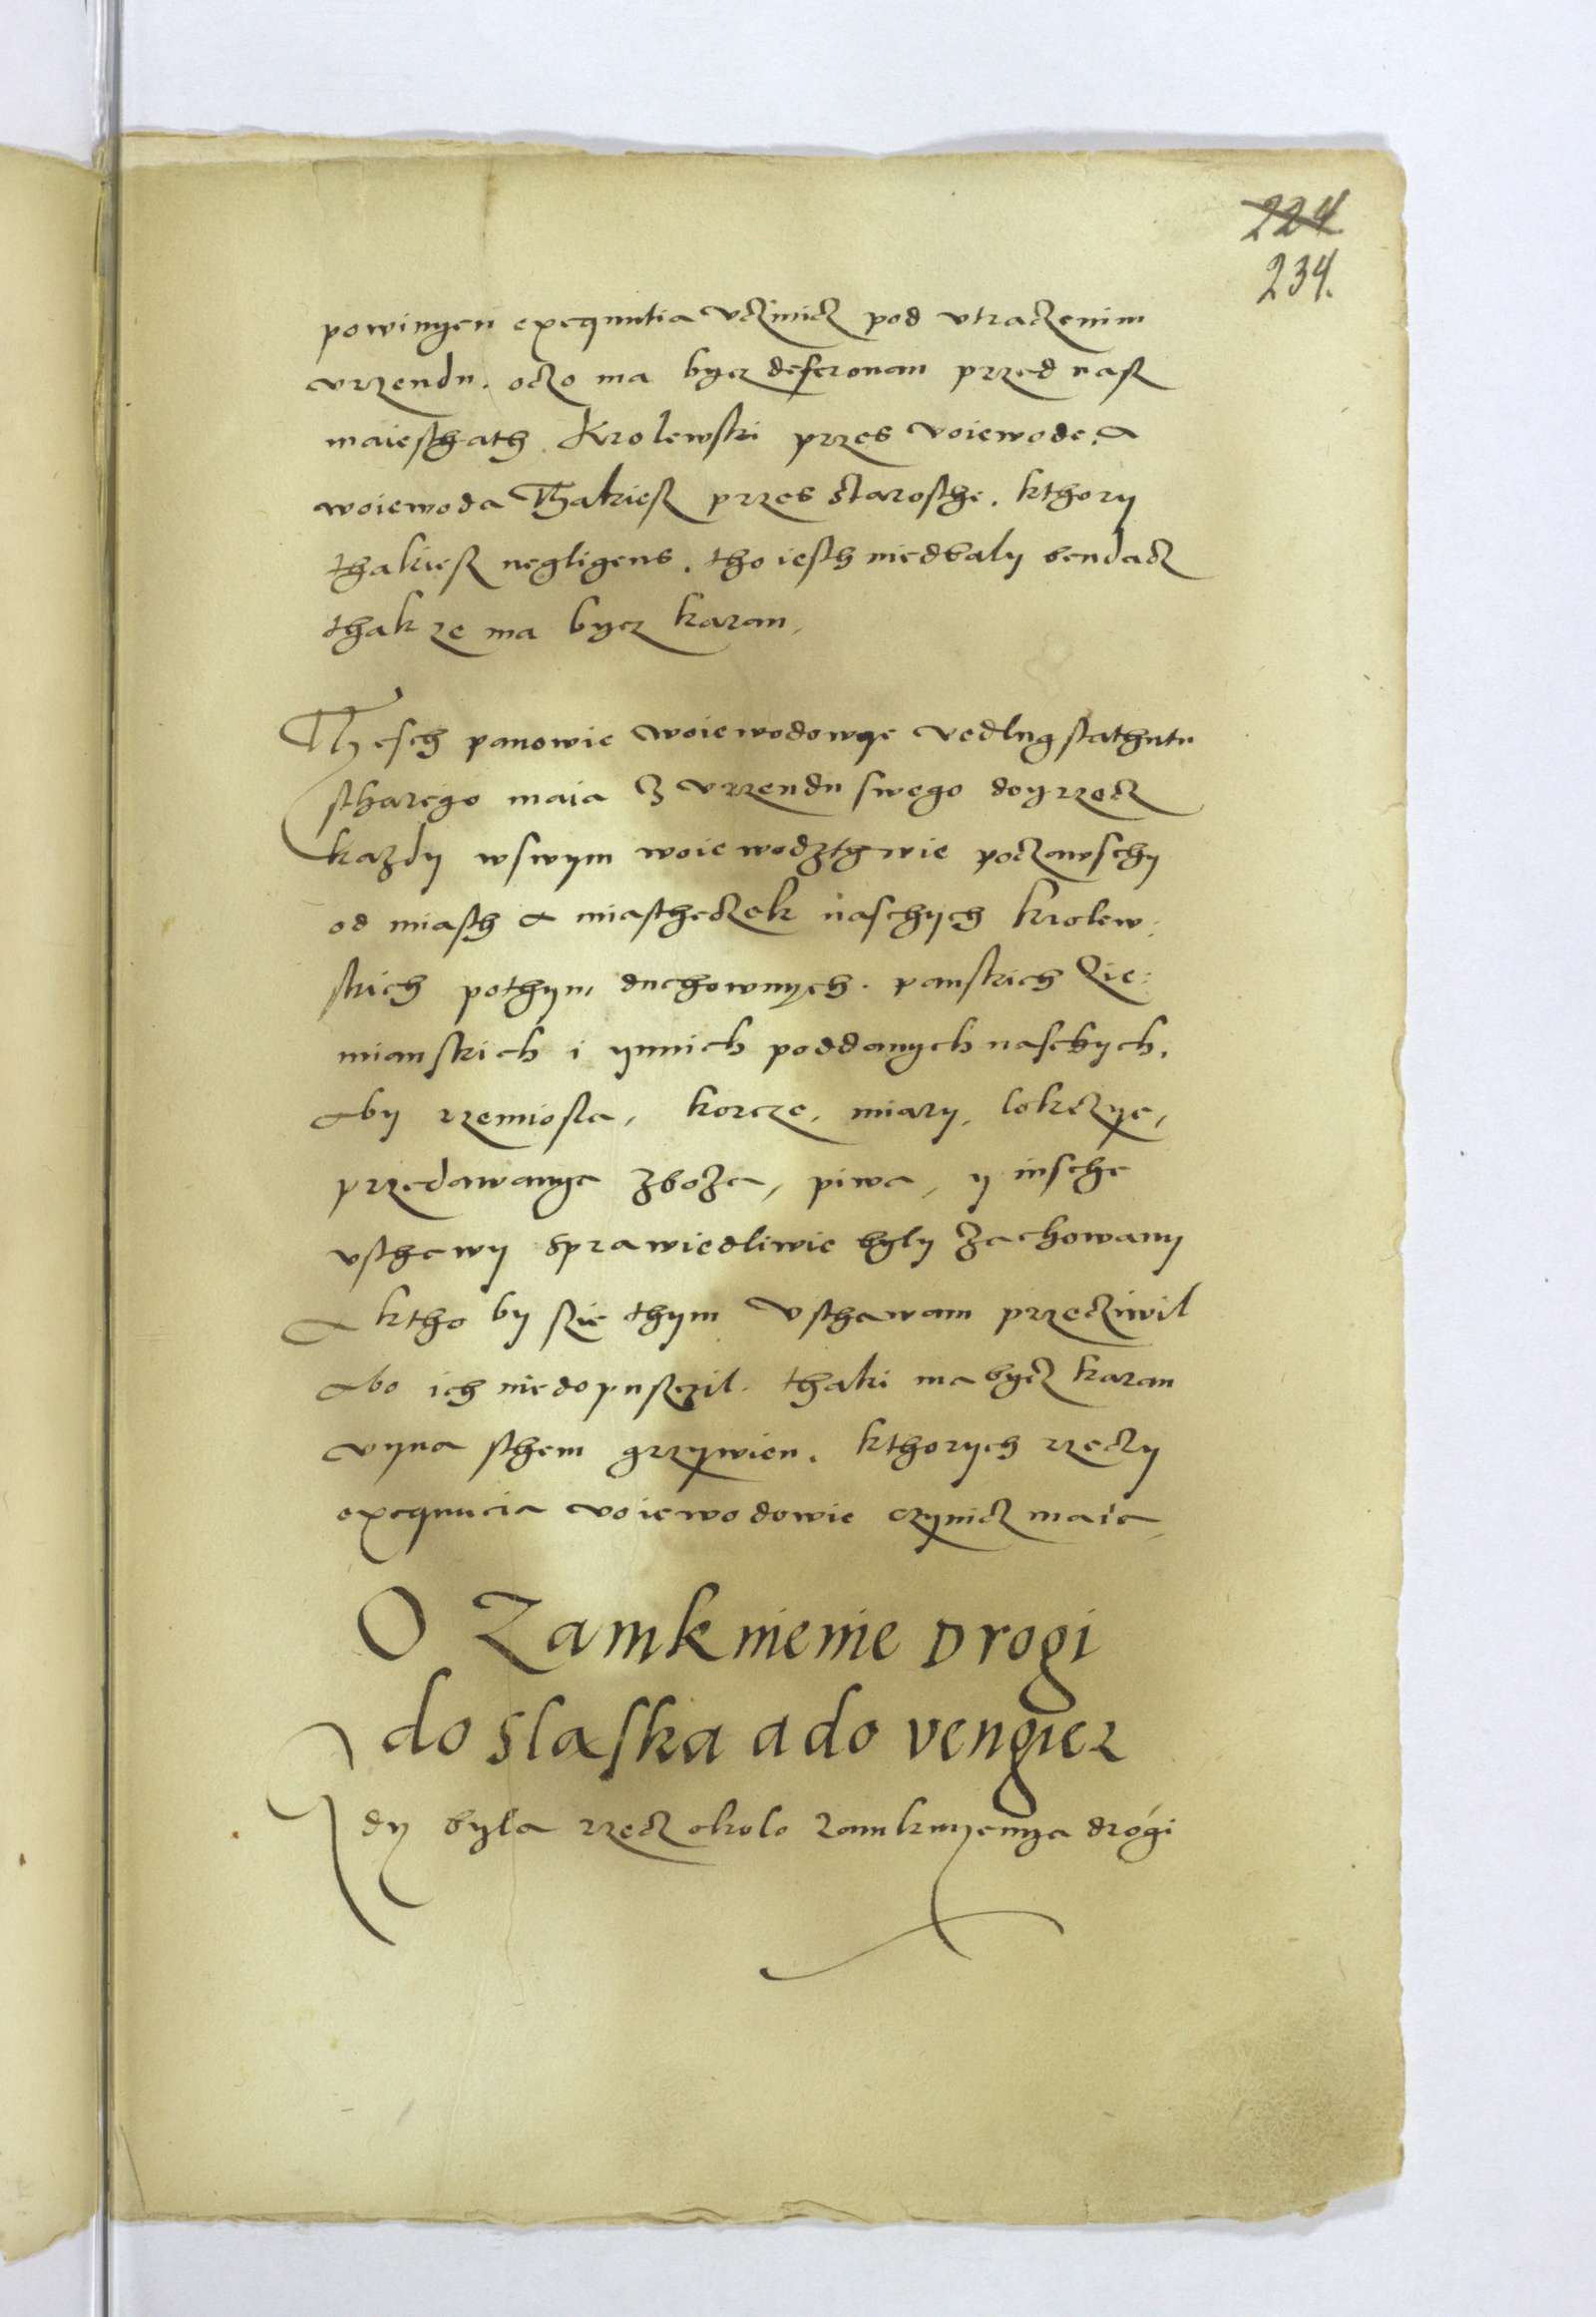 224.
234.
powinyen exequutia uczinicz pod utraczenim
urzendu. oczo ma bycz deferowan przed nasz
maiesthath Krolewski przes voiewode. a
woiewoda Thakiesz przes starosthe. kthory
thakiesz negligens. tho iesth niedbaly bendacz
thak ze ma bycz karan,
Thesch panowie woiewodowye vedlug stathutu
stharego maia z urzendu swego doyrzecz
kazdy wswym woiewodzthwie poczawschy
od miasth a miastheczek naschych krolew:
skich pothym duchownych. panskich Zie:
mianskich i ynnich poddanych naschych.
aby rzemiosla, korcze, miary, lokczye,
przedawanya zboza, piwa, y insche
usthawy sprawiedliwie byly zachowany
A ktho by szie thym Usthawam przecziwil
abo ich niedopusczil. thaki ma bycz karan
vyna sthem grzywien. kthorych rzeczy
exequucia voiewodowie czynicz maia,
O Zamknienie Drogi
do slaska a do vengier
Gdy byla rzecz okolo zamknyenya drogi